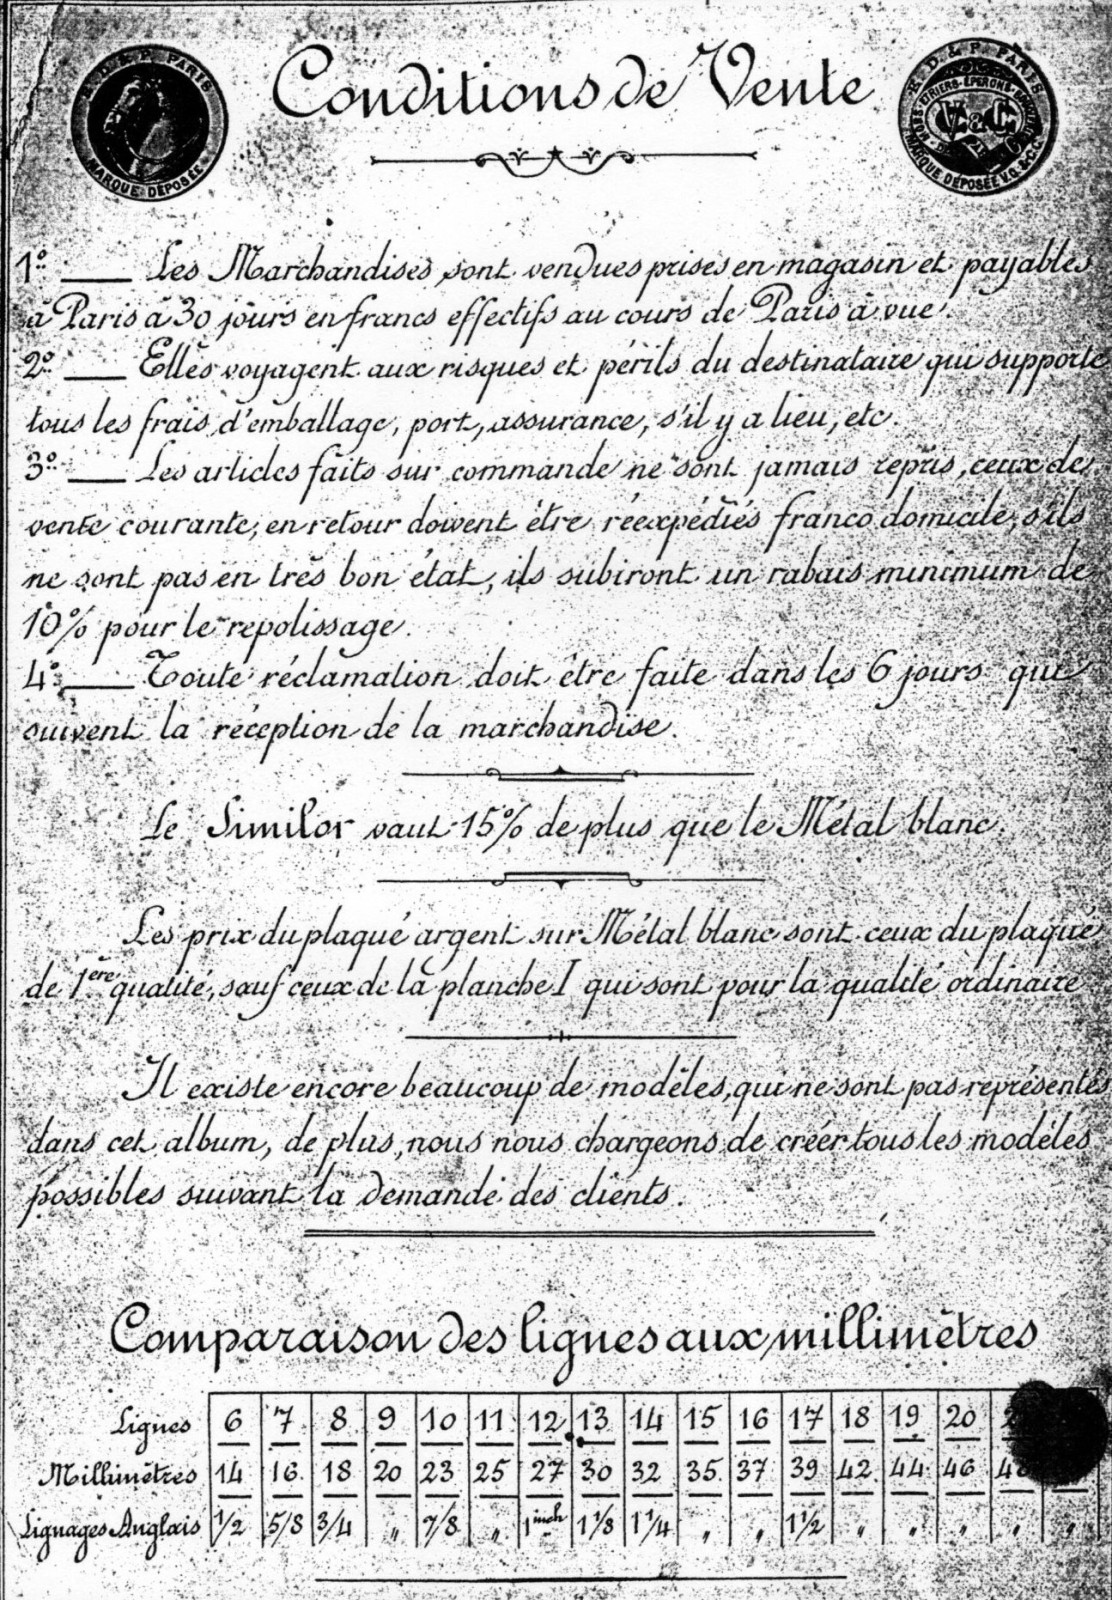 R. D. & P. PARIS
MARQUE DÉPOSÉE
Conditions de Vente
R. D. & P. PARIS
ÉTRIERS - ÉPERONS
V & C
MARQUE DÉPOSÉE V.O. & C.
1º. Les Marchandises sont vendues prises en magasin et payables
à Paris à 30 jours en francs effectifs au cours de Paris à vue.
2º. Elles voyagent aux risques et périls du destinataire qui supporte
tous les frais d'emballage, port, assurance, s'il y a lieu, etc.
3º. Les articles faits sur commande ne sont jamais repris, ceux de
vente courante, en retour doivent être réexpédiés franco domicile, s'ils
ne sont pas en très bon état, ils subiront un rabais minimum de
10% pour le repolissage.
4º. Toute réclamation doit être faite dans les 6 jours qui
suivent la réception de la marchandise.
Le Similor vaut 15% de plus que le Métal blanc.
Les prix du plaqué argent sur Métal blanc sont ceux du plaqué
de 1ère qualité, sauf ceux de la planche I qui sont pour la qualité ordinaire
Il existe encore beaucoup de modèles, qui ne sont pas représentés
dans cet album, de plus, nous nous chargeons de créer tous les modèles
possibles suivant la demande des clients.
Comparaison des lignes aux millimètres
Lignes 6 7 8 9 10 11 12 13 14 15 16 17 18 19 20
Millimètres 14 16 18 20 23 25 27 30 32 35 37 39 42 44 46
Lignages Anglais 1/2 5/8 3/4 " 7/8 " 1 inch 1 1/8 1 1/4 " " 1 1/2 " " " " "